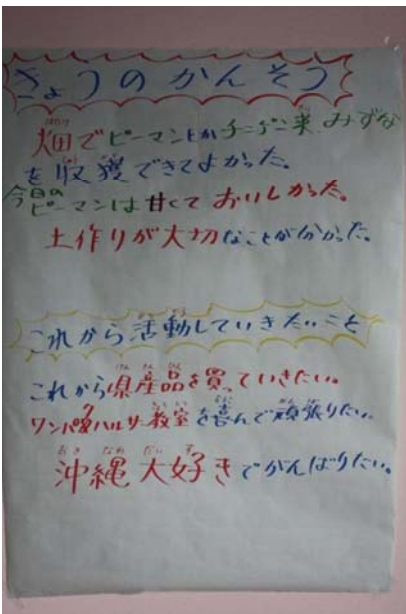 きょうのかんそう
畑でピーマンとかチンゲン菜、みずな
を収獲できてよかった。
今日の
ピーマンは甘くておいしかった。
土作りが大切なことが分かった。
これから活動していきたいこと
これから県産品を買っていきたい。
ワンパクハルサー教室を喜んで頑張りたい。
沖縄大好きでがんばりたい。